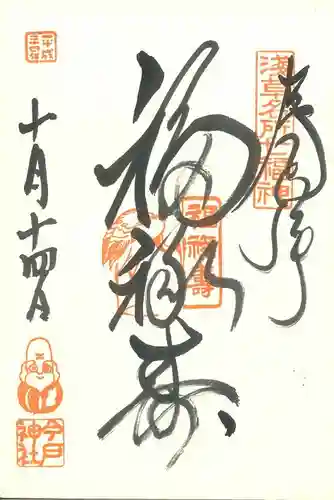 奉拝
淺草名所七福神
福禄寿
福禄壽
平成
十月十四日
今戸神社